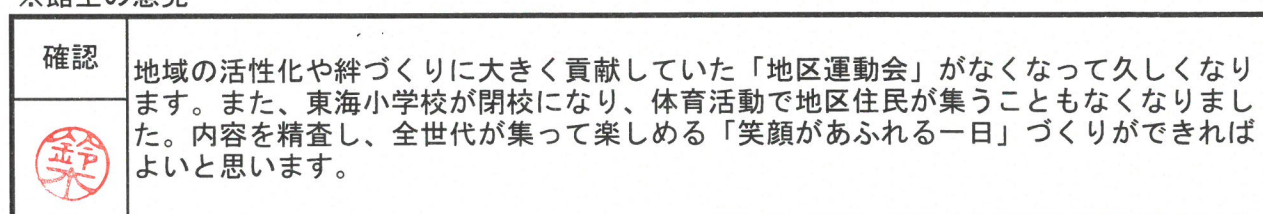 確認
地域の活性化や絆づくりに大きく貢献していた「地区運動会」がなくなって久しくなり
ます。また、東海小学校が閉校になり、体育活動で地区住民が集うこともなくなりまし
た。内容を精査し、全世代が集って楽しめる「笑顔があふれる一日」づくりができれば
よいと思います。
鈴木